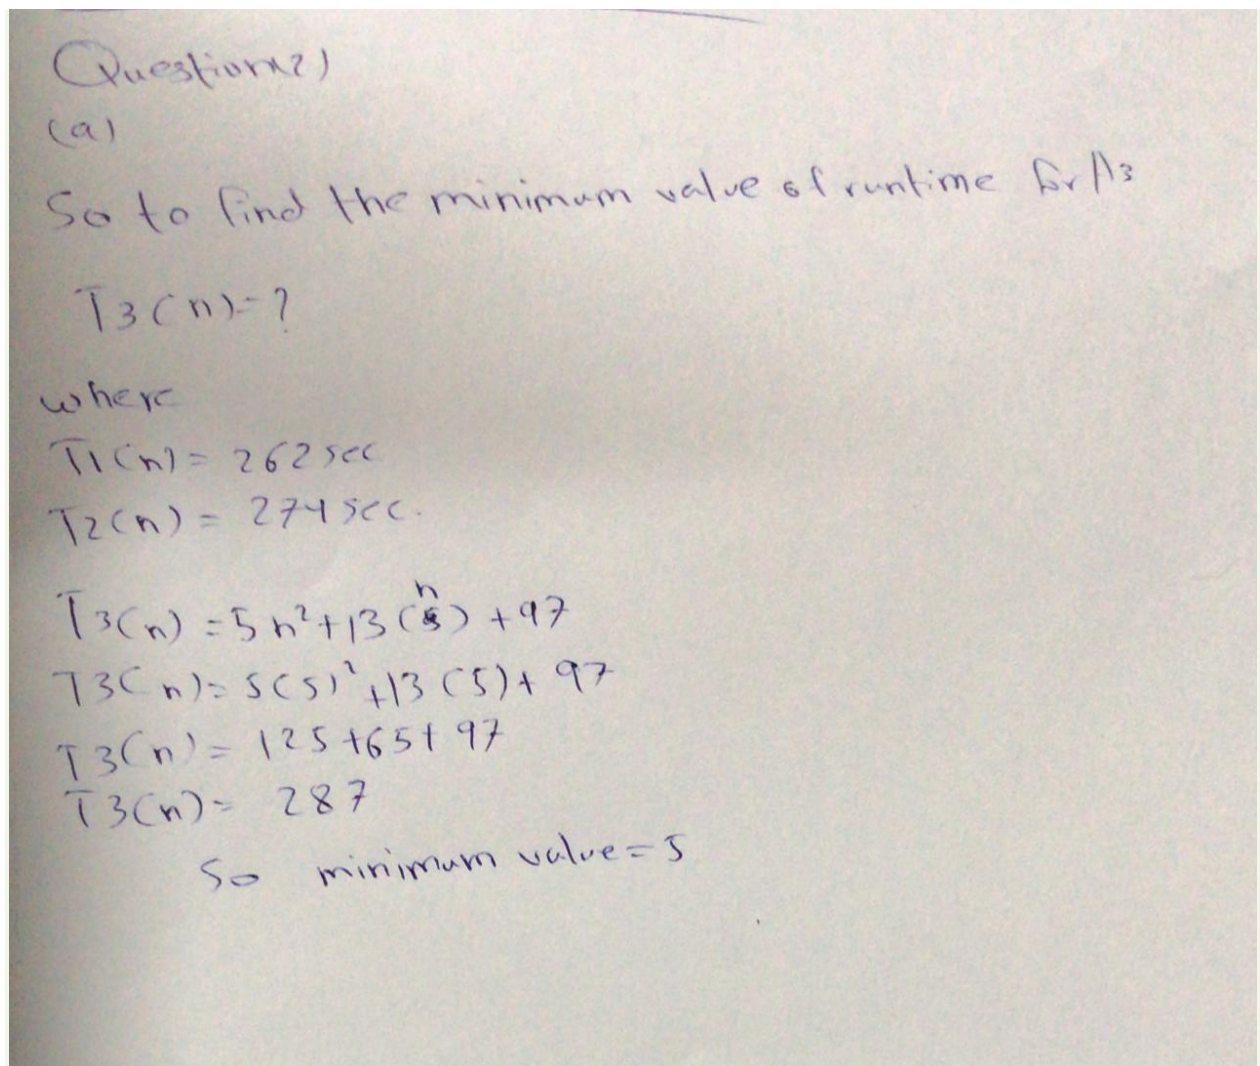 Question(2)
(a)
So to find the minimum value of runtime for A3
T3(n)=?
where
T1(n)= 262 sec
T2(n)= 274 sec.
n
T3(n) =5n²+13( ) +97
T3(n)= 5(5)²+13(5)+ 97
T3(n)= 125+65+97
T3(n)= 287
So minimum value=5